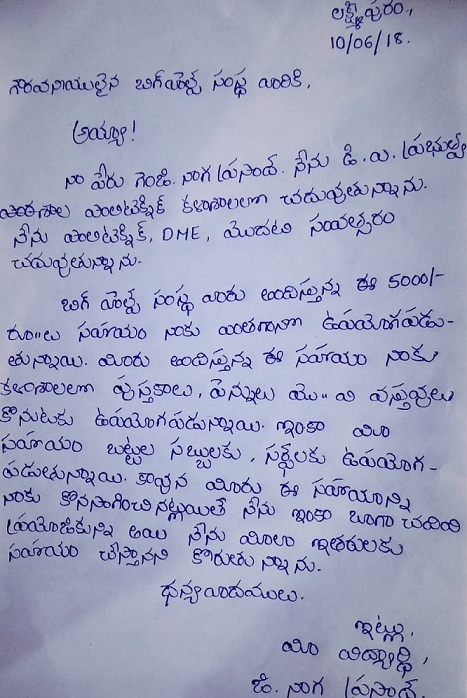 లక్ష్మీపురం,
10/06/18.
గౌరవనీయులైన బిగ్ హెల్ప్ సంస్థ వారికి,
అయ్యా!
నా పేరు గెంజి. నాగ ప్రసాద్. నేను డి.ఎ. ప్రభుత్వ
పాఠశాల పాలిటెక్నిక్ కళాశాలలో చదువుతున్నాను.
నేను పాలిటెక్నిక్, DME, మొదటి సంవత్సరం
చదువుతున్నాను.
బిగ్ హెల్ప్ సంస్థ వారు అందిస్తున్న ఈ 5000/-
రూ"లు సహాయం నాకు ఎంతగానో ఉపయోగపడు-
తున్నాయి. మీరు అందిస్తున్న ఈ సహాయం నాకు
కళాశాలలో పుస్తకాలు, పెన్నులు మొ"వి వస్తువులు
కొనుటకు ఉపయోగపడున్నాయి. ఇంకా మీ
సహాయం బట్టల సబ్బులకు, సర్ఫులకు ఉపయోగ-
పడుతున్నాయి. కావున మీరు ఈ సహాయాన్ని
నాకు కొనసాగించినట్లయితే నేను ఇంకా బాగా చదివి
ప్రయోజకున్ని అయి నేను మీలా ఇతరులకు
సహాయం చేస్తానని కోరుతున్నాను.
ధన్యవాదములు.
ఇట్లు,
మీ విద్యార్థి,
జి. నాగ ప్రసాద్.